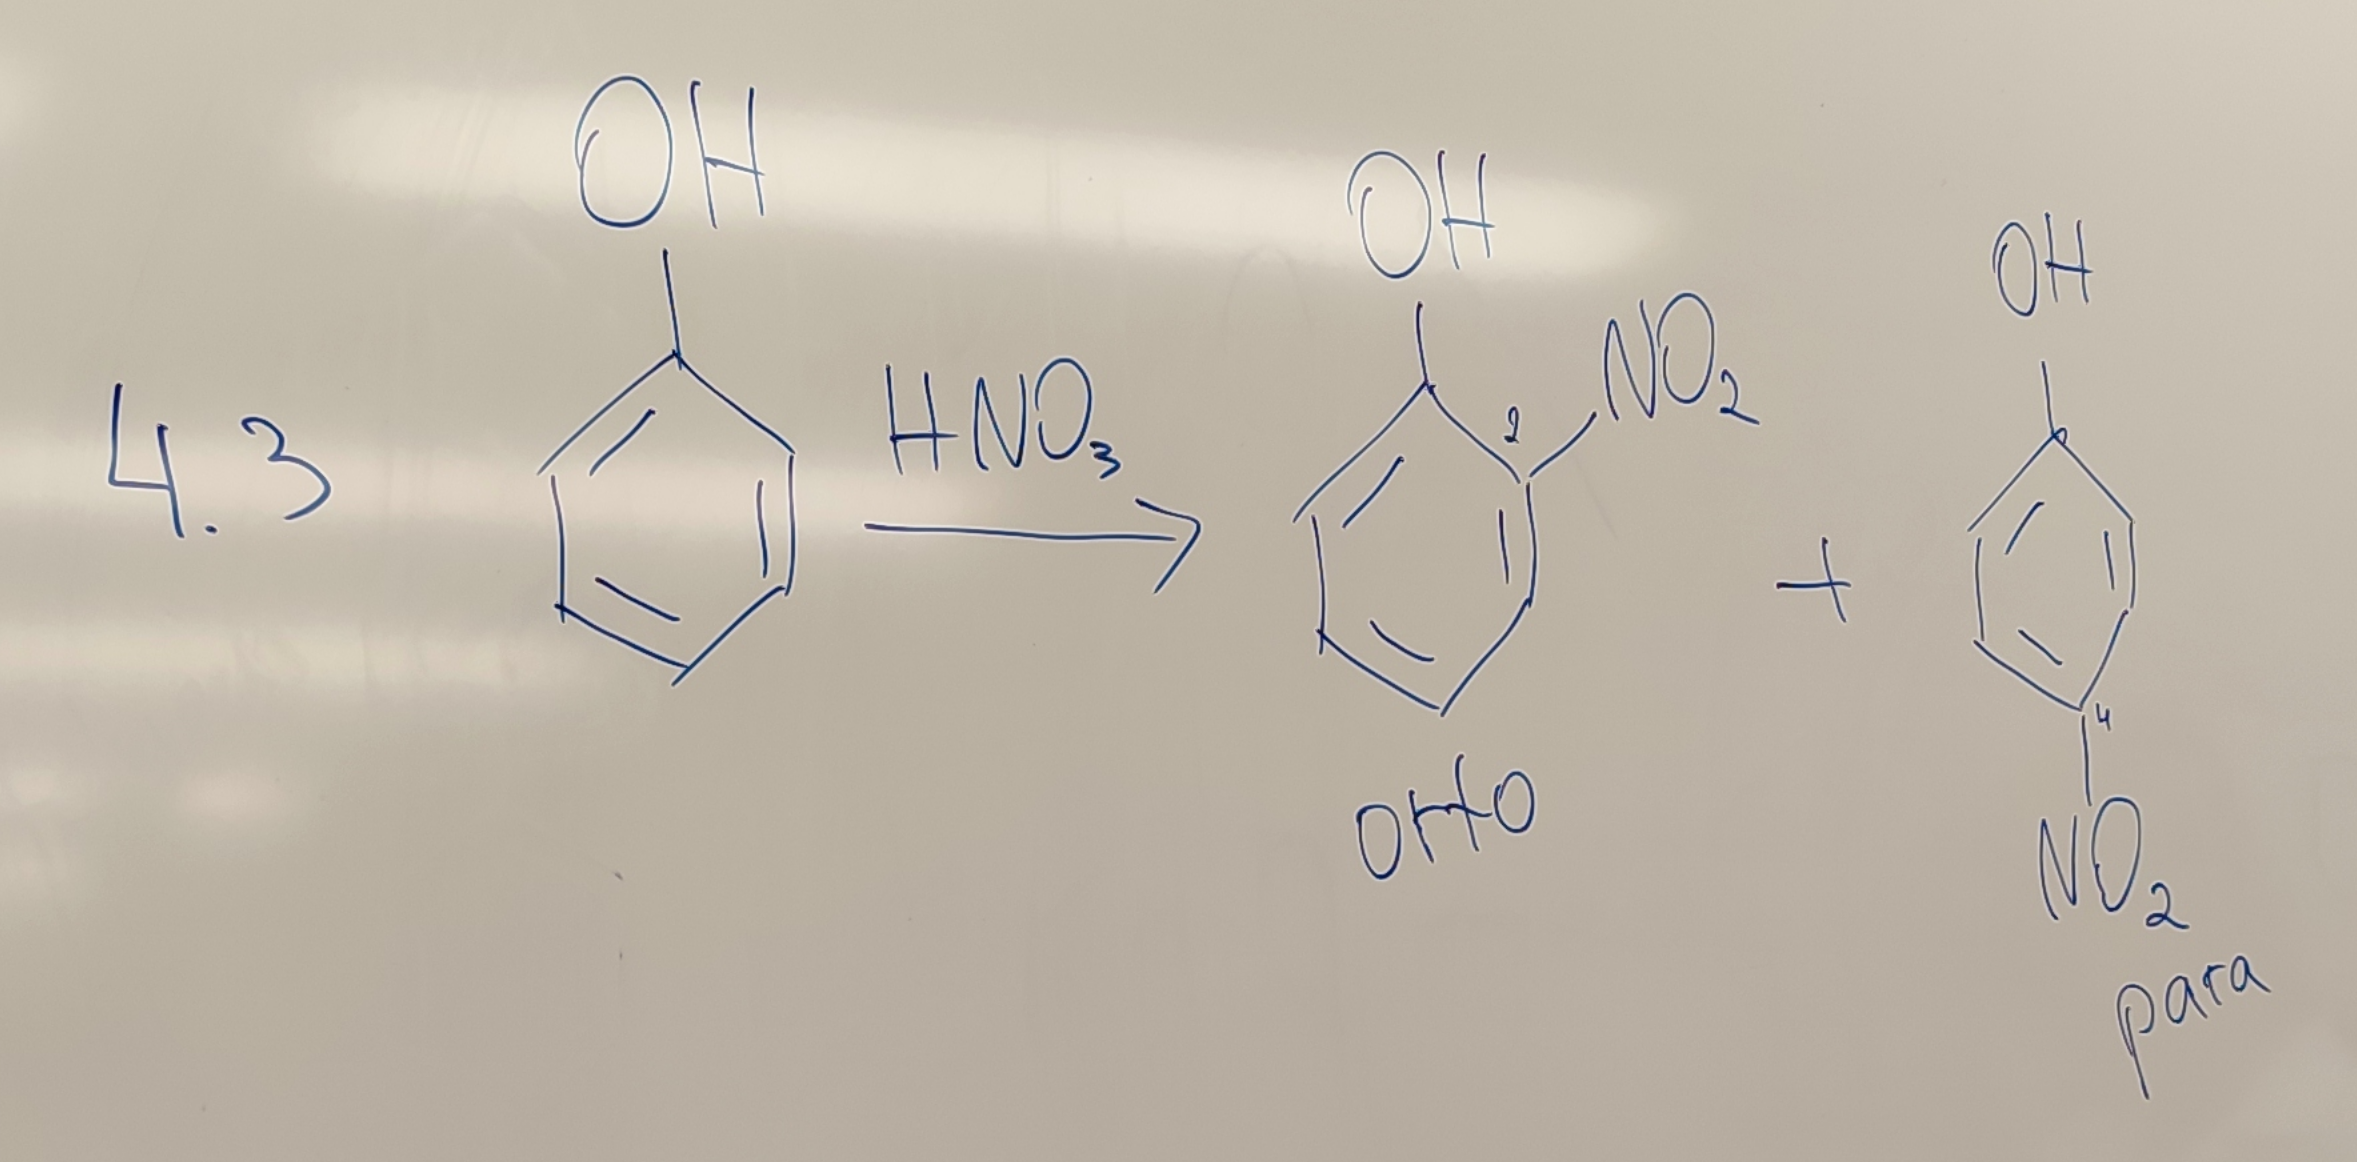 4.3
OH
HNO3
OH
2
NO2
orto
+
OH
4
NO2
para